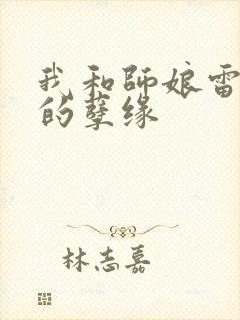 我和師娘雷
的孽缘
林志嘉